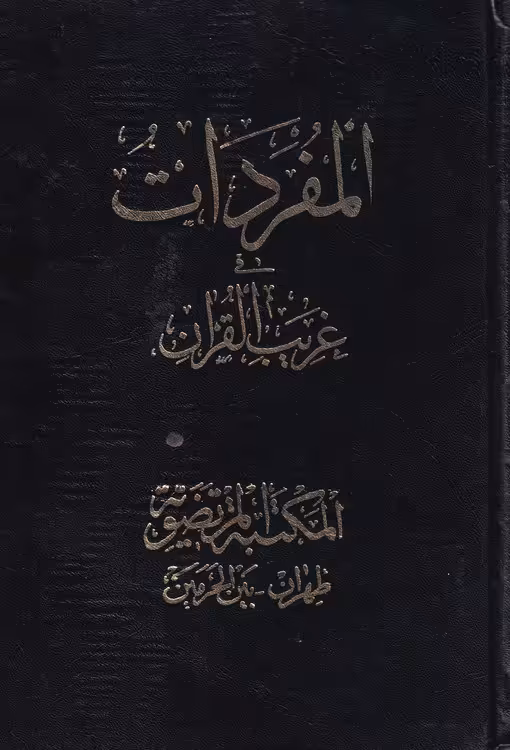 المُفْرَدَاتُ
في
غَرِيبِ القُرآنِ
المكتبة المرتضوية
طهران - بين الحرمين